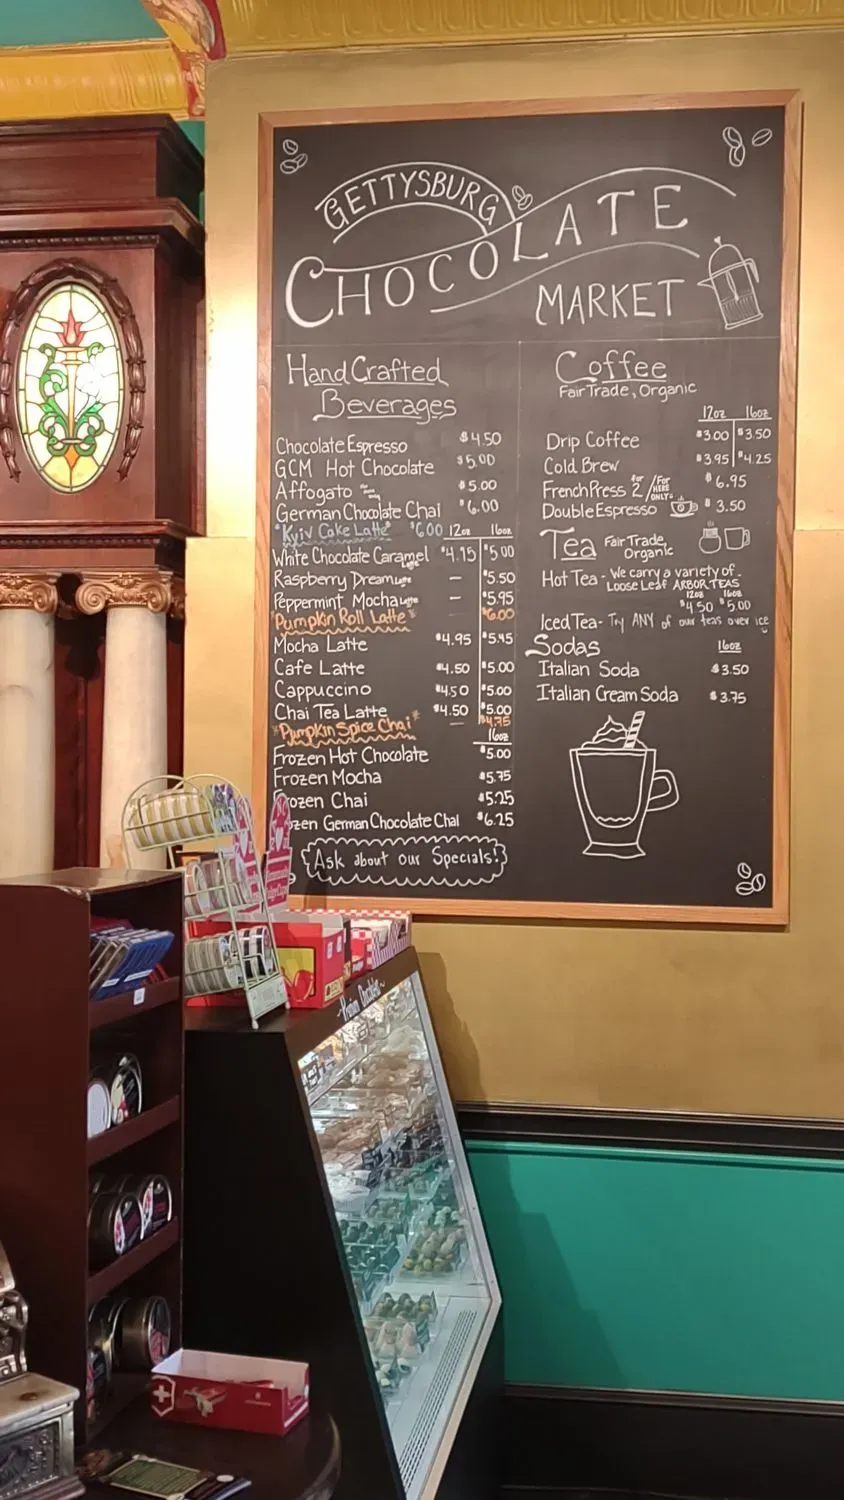 GETTYSBURG
CHOCOLATE
MARKET
HandCrafted
Beverages
Chocolate Espresso $4.50
GCM Hot Chocolate $5.00
Affogato $5.00
German Chocolate Chai $6.00
"Kyiv Cake Latte" $6.00 12oz 16oz
White Chocolate Caramel Latte $4.75 $5.00
Raspberry Dream Latte — $5.50
Peppermint Mocha Latte — $5.95
"Pumpkin Roll Latte" $6.00
Mocha Latte $4.95 $5.45
Cafe Latte $4.50 $5.00
Cappuccino $4.50 $5.00
Chai Tea Latte $4.50 $5.00
"Pumpkin Spice Chai" — $4.75
16oz
Frozen Hot Chocolate $5.00
Frozen Mocha $5.75
rozen Chai $5.25
ozen German Chocolate Chai $6.25
Ask about our Specials!
Coffee
Fair Trade, Organic
12oz 16oz
Drip Coffee $3.00 $3.50
Cold Brew $3.95 $4.25
French Press for 2 / For HERE ONLY $6.95
Double Espresso $3.50
Tea Fair Trade,
Organic
Hot Tea - We carry a variety of
Loose Leaf ARBOR TEAS
12oz 16oz
$4.50 $5.00
Iced Tea - Try ANY of our teas over ice
Sodas 16oz
Italian Soda $3.50
Italian Cream Soda $3.75